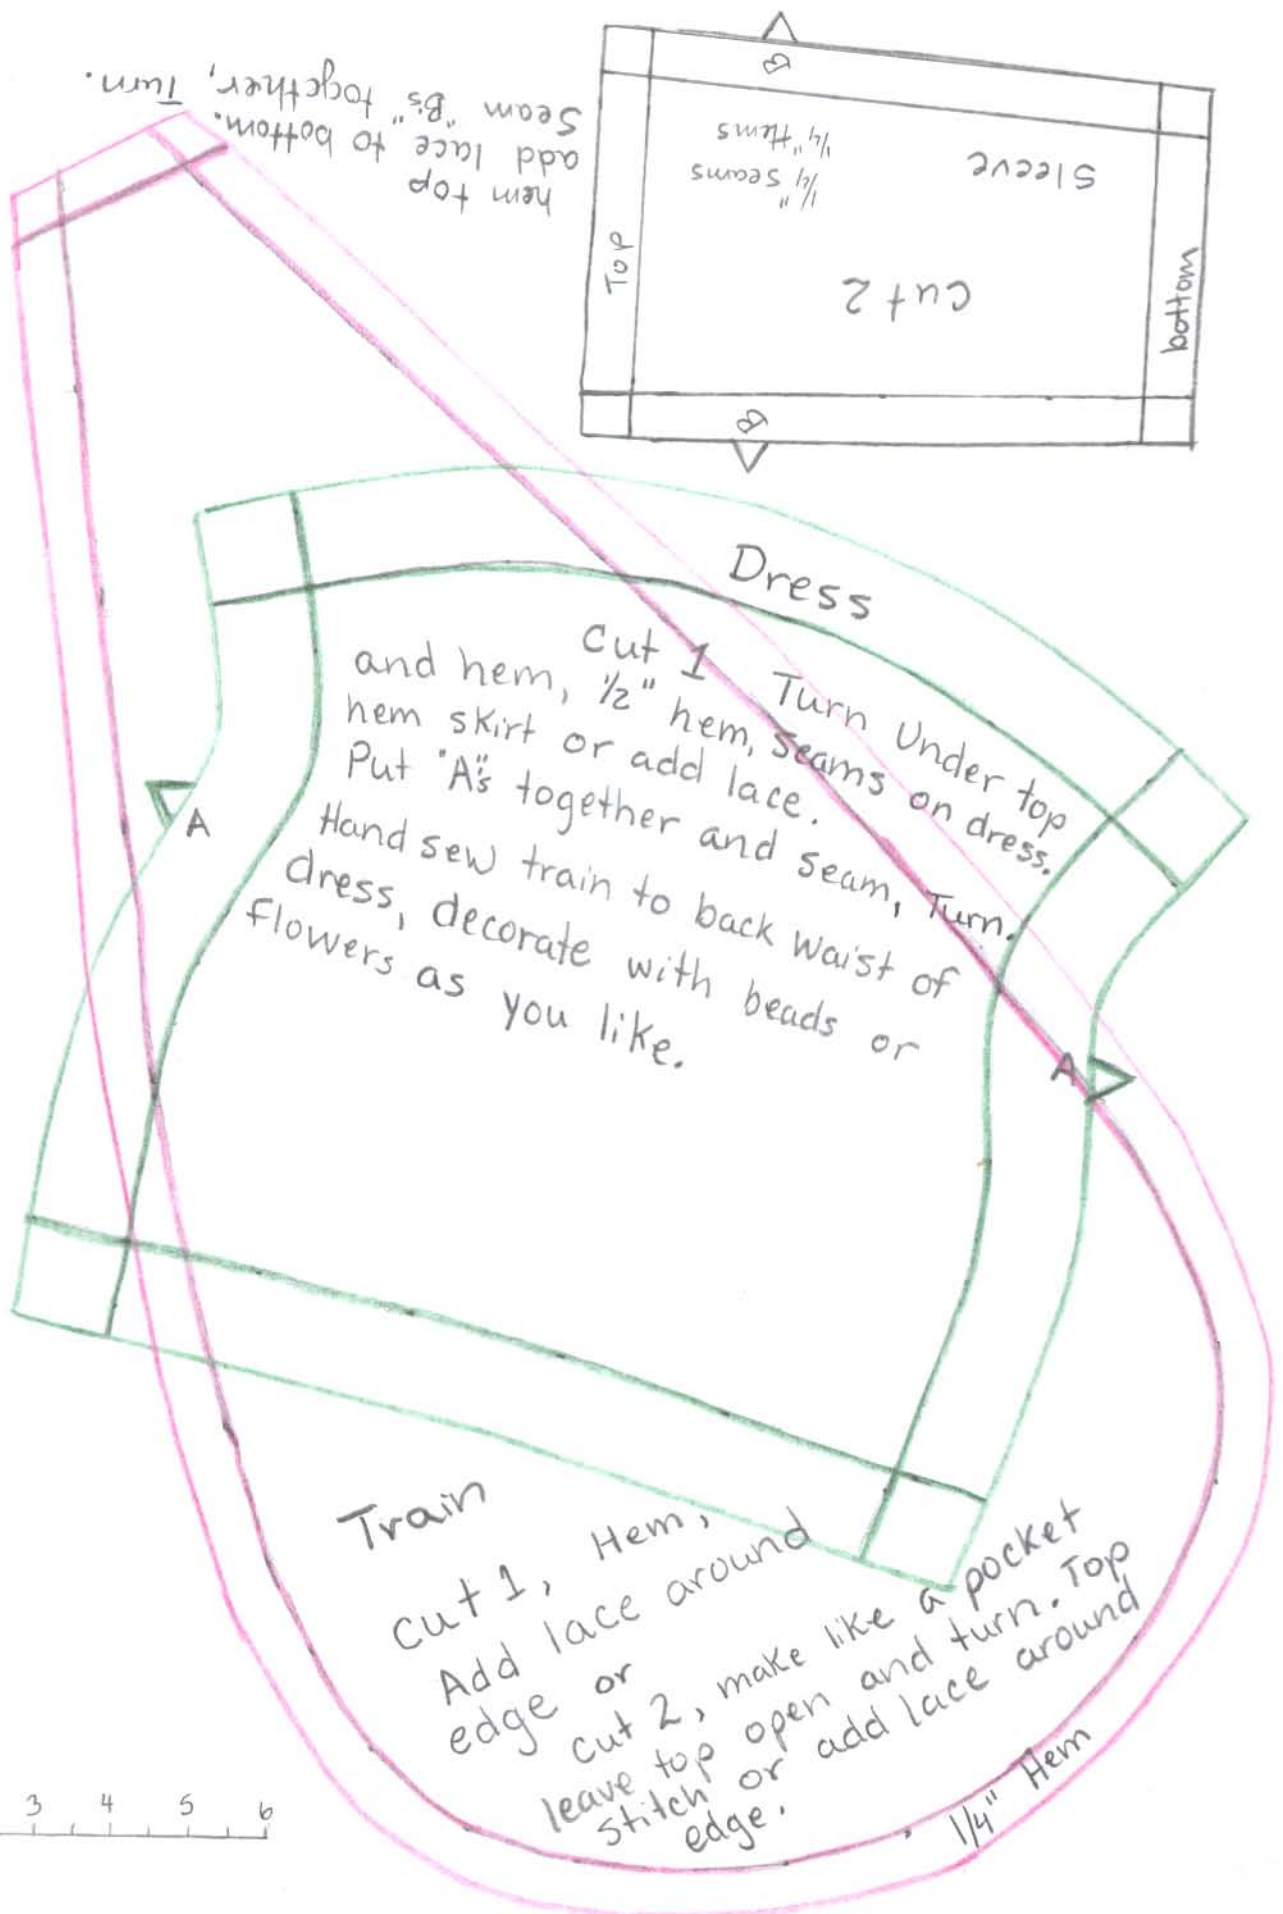 hem top
add lace to bottom.
Seam "B's" together, Turn.
B
1/4" Seams
1/4" Hems
Sleeve
Cut 2
Top
bottom
B
Dress
Cut 1 Turn Under top
and hem, 1/2" hem, seams on dress.
hem skirt or add lace.
Put "A"s together and seam, Turn.
Hand sew train to back waist of
dress, decorate with beads or
flowers as you like.
A
A
Train
cut 1, Hem,
Add lace around
edge or
cut 2, make like a pocket
leave top open and turn. Top
stitch or add lace around
edge.
1/4" Hem
3 4 5 6